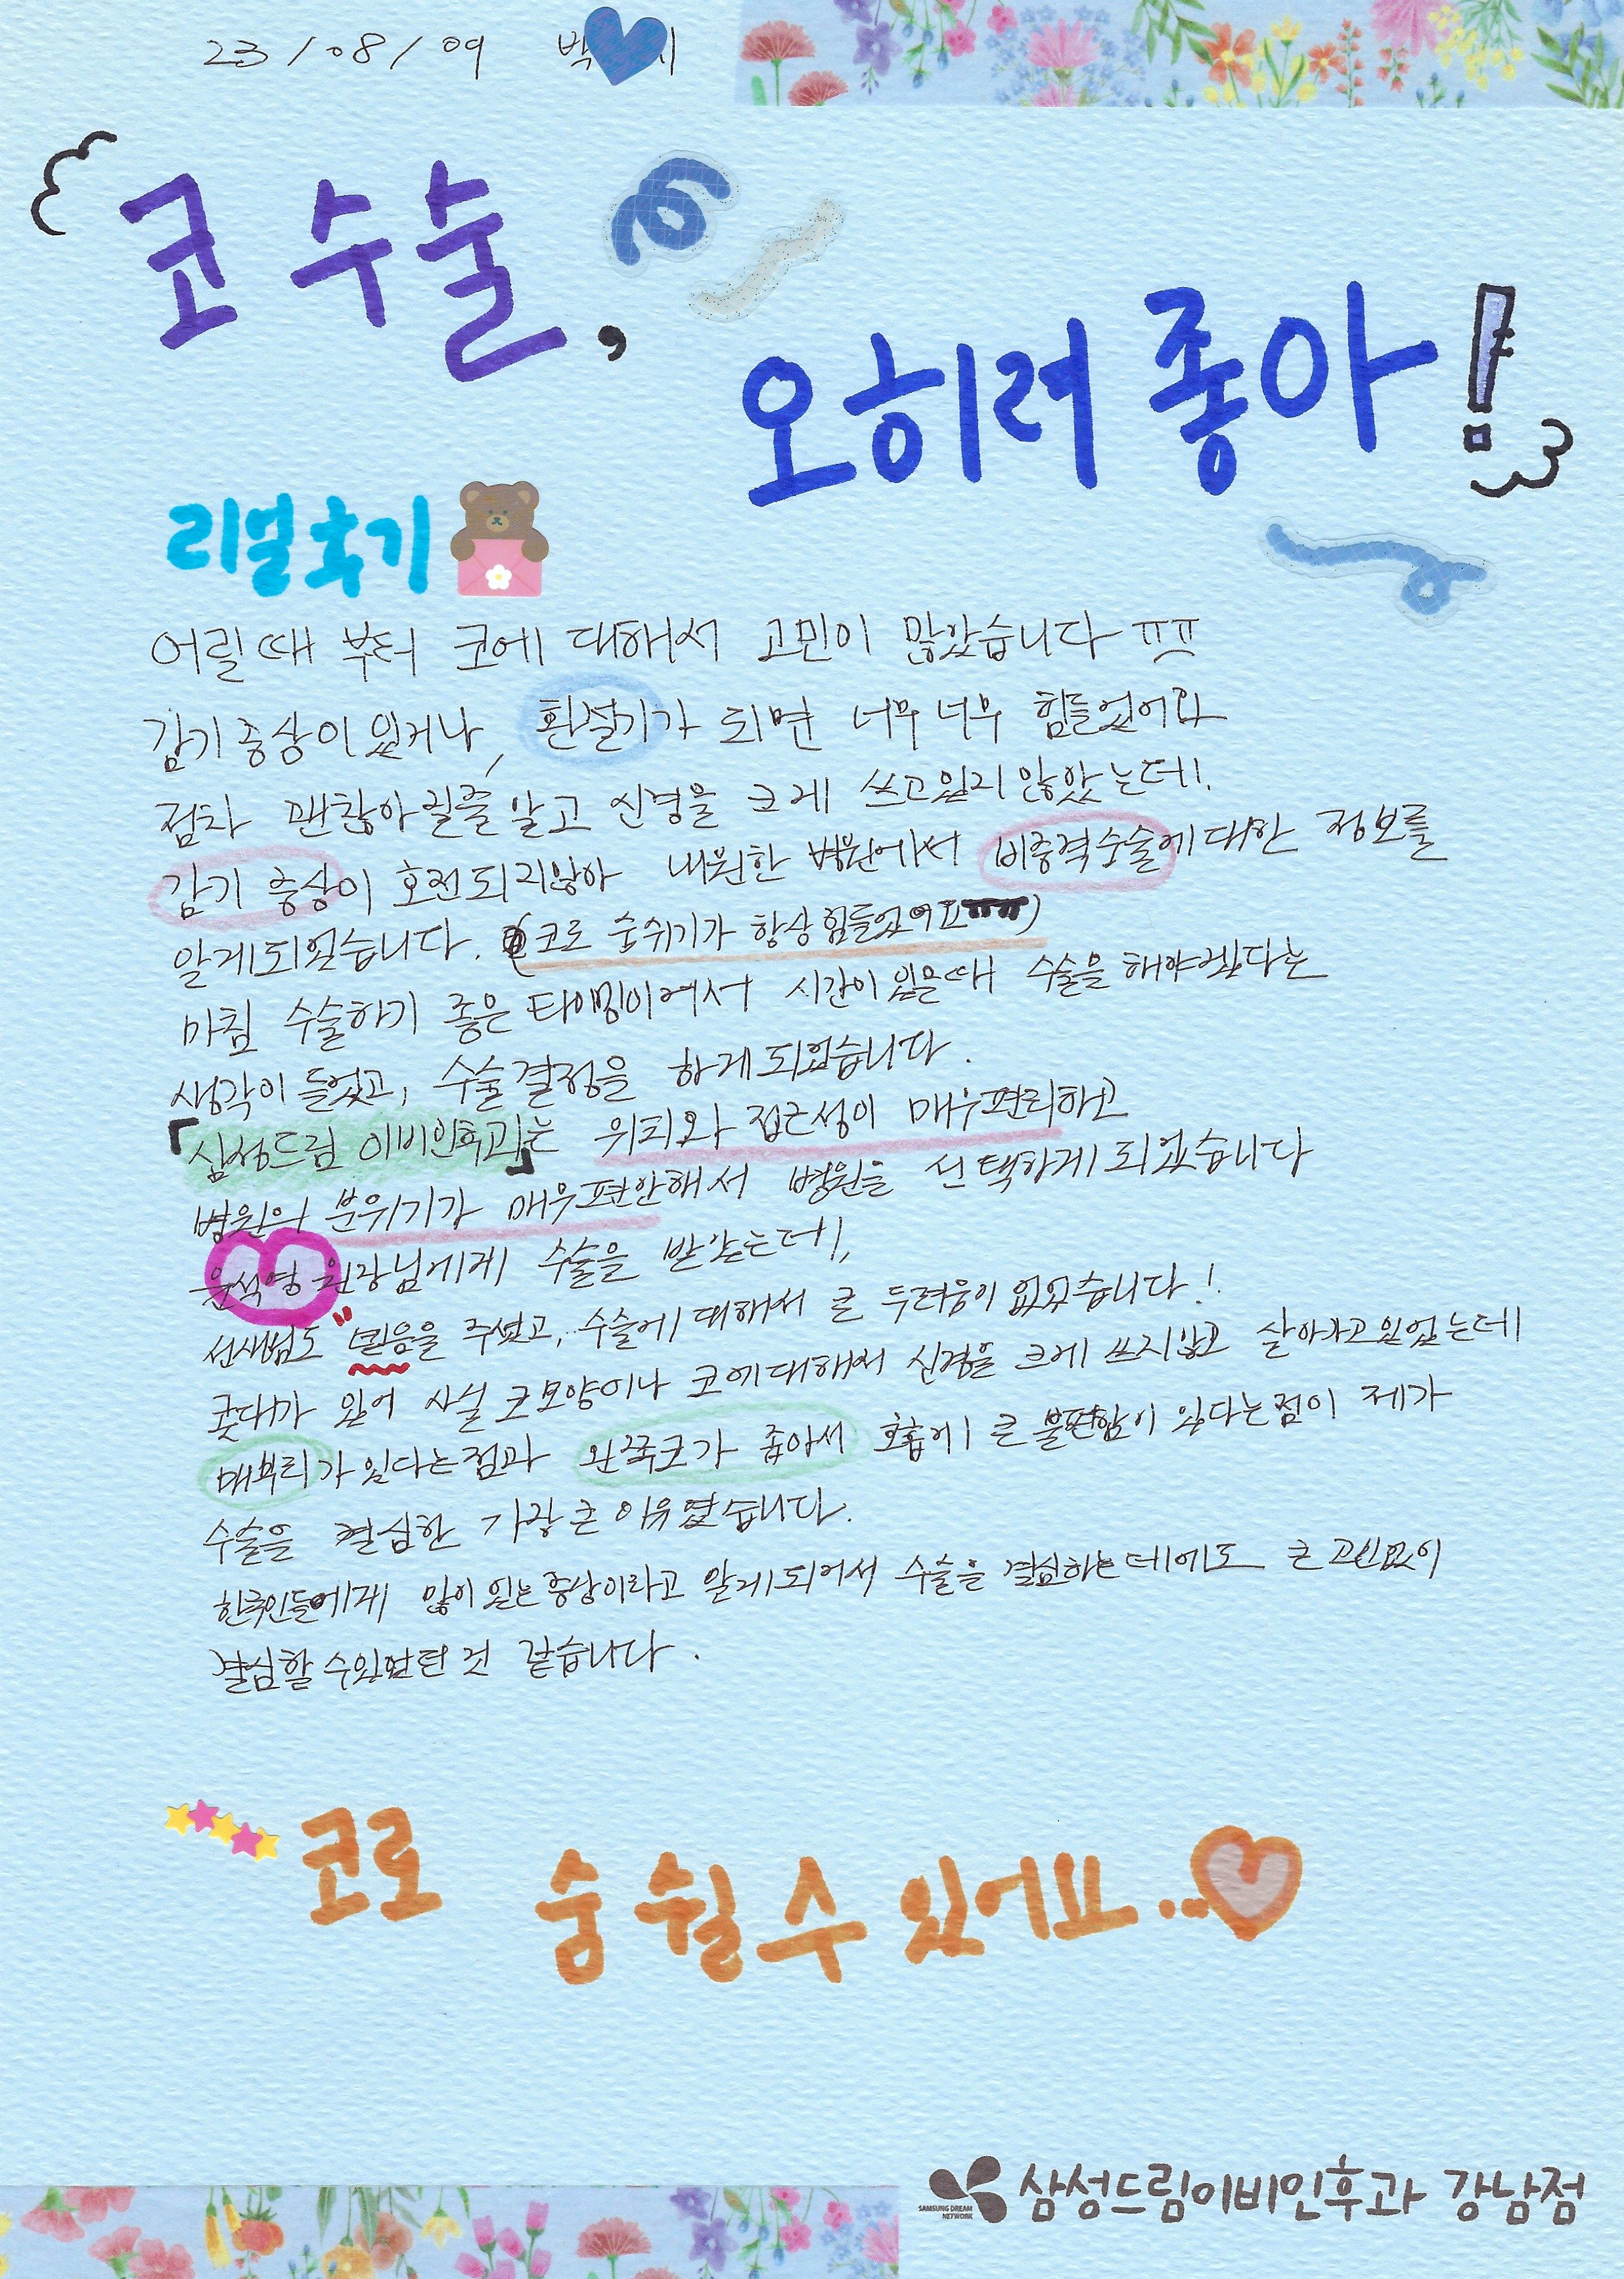 23/08/09 박 시
코 수술,
오히려 좋아!
리얼후기
어릴때 부터 코에 대해서 고민이 많았습니다 ㅠㅠ
감기증상이 있거나, 환절기가 되면 너무 너무 힘들었어요
점차 괜찮아질줄 알고 신경을 크게 쓰고있지 않았는데!
감기 증상이 호전되지않아 내원한 병원에서 비중격수술에대한 정보를
알게되었습니다. (코로 숨쉬기가 항상 힘들었어요ㅠㅠ)
마침 수술하기 좋은 타이밍이어서 시간이 있을때 수술을 해야겠다는
생각이 들었고, 수술결정을 하게되었습니다.
「삼성드림 이비인후과」는 위치와 접근성이 매우편리하고
병원의 분위기가 매우편안해서 병원을 선택하게되었습니다
윤석영 원장님에게 수술을 받았는데,
선생님도 "믿음을 주셨고, 수술에 대해서 큰 두려움이 없었습니다!
콧대가 있어 사실 코모양이나 코에대해서 신경을 크게 쓰지않고 살아가고있었는데
매부리가있다는점과 왼쪽코가 좁아서 호흡에 큰 불편함이 있다는점이 제가
수술을 결심한 가장큰 이유였습니다.
한국인들에게 많이 있는 증상이라고 알게되어서 수술을 결심하는데에도 큰 고민없이
결심할 수있었던 것 같습니다.
코로 숨 쉴 수 있어요..
SAMSUNG DREAM NETWORK 삼성드림이비인후과 강남점